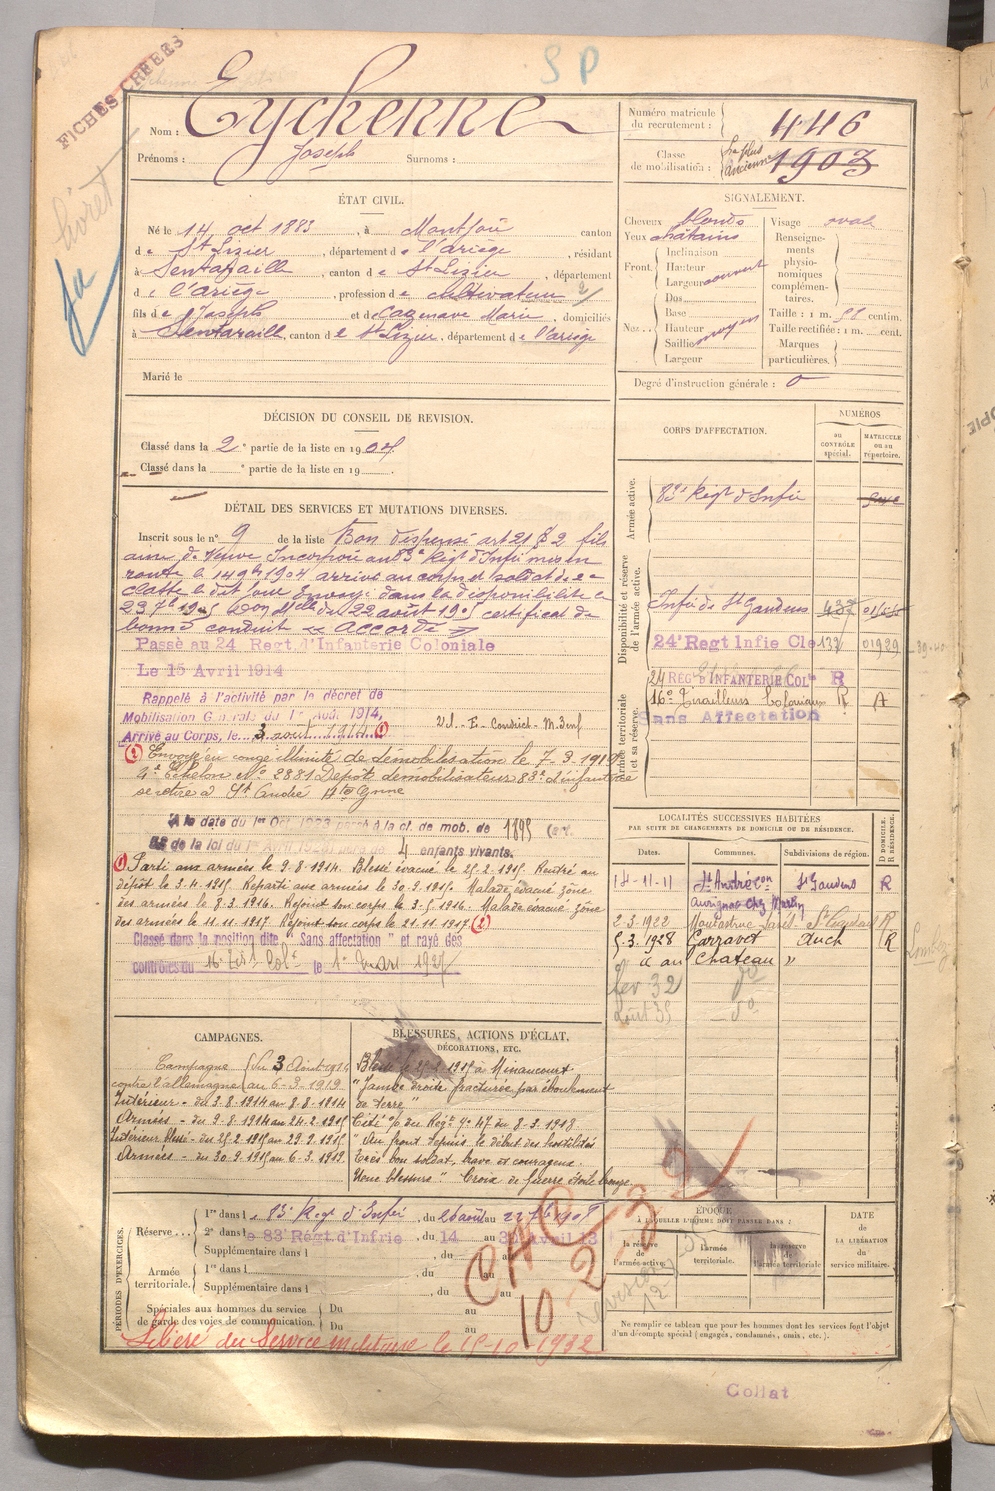 FICHES CRÉÉES
SP
Nom : Eychenne
Prénoms : Joseph Surnoms :
Numéro matricule du recrutement : 446
Classe de mobilisation : la plus ancienne 1903
livret
ÉTAT CIVIL.
Né le 14 oct 1883, à Montjoie canton
de St Lizier, département de l'ariège, résidant
à Sentaraille, canton de St Lizier, département
de l'ariège, profession de cultivateur
fils de Joseph et de Cazenave Marie, domiciliés
à Sentaraille, canton de St Lizier, département de l'ariège
Marié le
SIGNALEMENT.
Cheveux blonds
Yeux châtains
Front. Inclinaison
Hauteur
Largeur couvert
Nez. Dos
Base
Hauteur moyen
Saillie
Largeur
Visage oval
Renseignements physionomiques complémentaires.
Taille : 1 m. 58 centim.
Taille rectifiée : 1 m. cent.
Marques particulières.
Degré d'instruction générale : 0
DÉCISION DU CONSEIL DE REVISION.
Classé dans la 2e partie de la liste en 1904.
Classé dans la e partie de la liste en 19 .
CORPS D'AFFECTATION.
NUMÉROS
AU CONTRÔLE spécial.
MATRICULE ou au répertoire.
Armée active.
83e Régt d'Infie
Disponibilité et réserve de l'armée active.
Infie de St Gaudens 437
24e Regt Infie Cle 132 01929
24 REG. D'INFANTERIE COLle R
Armée territoriale et sa réserve.
16e Tirailleurs Coloniaux R A
Sans Affectation
DÉTAIL DES SERVICES ET MUTATIONS DIVERSES.
Inscrit sous le n° 9 de la liste Bon dispensé art 21 § 2 fils
ainé de veuve Incorporé au 83e Régt d'Infie mis en
route le 14 9bre 1904 arrivé au corps et soldat de 2e
classe le dit jour Envoyé dans la disponibilité le
23 7bre 1905 Don Mlle du 22 août 1905 certificat de
bonne conduite « accordé »
Passé au 24 Regt d'Infanterie Coloniale
Le 15 Avril 1914
Rappelé à l'activité par le décret de
Mobilisation Générale du 1er Août 1914,
Arrivé au Corps, le 3 août 1914 (1)
(2) Envoyé en congé illimité de démobilisation le 7-3-1919
4e Echelon N° 2881 Dépôt démobilisateur 83e d'infanterie
se retire à St André Hte Gnne
A la date du 1er Oct. 1923 passé à la cl. de mob. de 1895 (art.
de la loi du 1er Avril 1923) père de 4 enfants vivants.
(1) Parti aux armées le 9.8.1914. Blessé évacué le 25.2.1915. Rentré au
dépôt le 3.4.1915. Reparti aux armées le 30.9.1915. Malade évacué zône
des armées le 8.3.1916. Rejoint son corps le 3.5.1916. Malade évacué zône
des armées le 11.11.1917. Rejoint son corps le 21.11.1917 (2)
Classé dans la position dite „ Sans affectation " et rayé des
contrôles du 16e Tirs Colx le 1er Mars 1927
LOCALITÉS SUCCESSIVES HABITÉES
PAR SUITE DE CHANGEMENTS DE DOMICILE OU DE RÉSIDENCE.
Dates. Communes. Subdivisions de région. D DOMICILE. R RÉSIDENCE.
14-11-11 St André con St Gaudens R
Aurignac chez Martin
2.3.1922 Montastruc Savès St Gaudens R
5.3.1928 Cazzavet Auch R
Lombez
il au Chateau "
fev 32 do
août 35 do
CAMPAGNES.
Campagne du 3 Août 1914
contre l'allemagne au 6-3-1919
Intérieur - du 3.8.1914 au 8.8.1914
Armées - du 9.8.1914 au 24.2.1915
Intérieur blessé - du 25.2.1915 au 29.9.1915
Armées - du 30.9.1915 au 6.3.1919
BLESSURES, ACTIONS D'ÉCLAT,
DÉCORATIONS, ETC.
Blessé le 25.2.1915 à Minaucourt
"Jambe droite fracturée par éboulement
de terre"
Cité o/ du Régt n° 47 du 8-3-1918
"Au front depuis le début des hostilités
Très bon soldat, brave et courageux.
Une blessure". Croix de Guerre étoile bronze.
PÉRIODES D'EXERCICES.
Réserve... 1re dans le 83e Régt d'Infie, du 26 août au 22 7bre 1908
2e dans le 83e Régt d'Infrie, du 14 au 30 avril 13
Supplémentaire dans l , du au
Armée territoriale. 1re dans l , du au
Supplémentaire dans l , du au
Spéciales aux hommes du service de garde des voies de communication. Du au
Du au
Libéré du Service militaire le 15-10-1932
10-2-32
ÉPOQUE
À LAQUELLE L'HOMME DOIT PASSER DANS :
la réserve de l'armée active.
l'armée territoriale.
la réserve de l'armée territoriale
DATE DE LA LIBÉRATION du service militaire.
Ne remplir ce tableau que pour les hommes dont les services font l'objet
d'un décompte spécial (engagés, condamnés, omis, etc.).
Collat